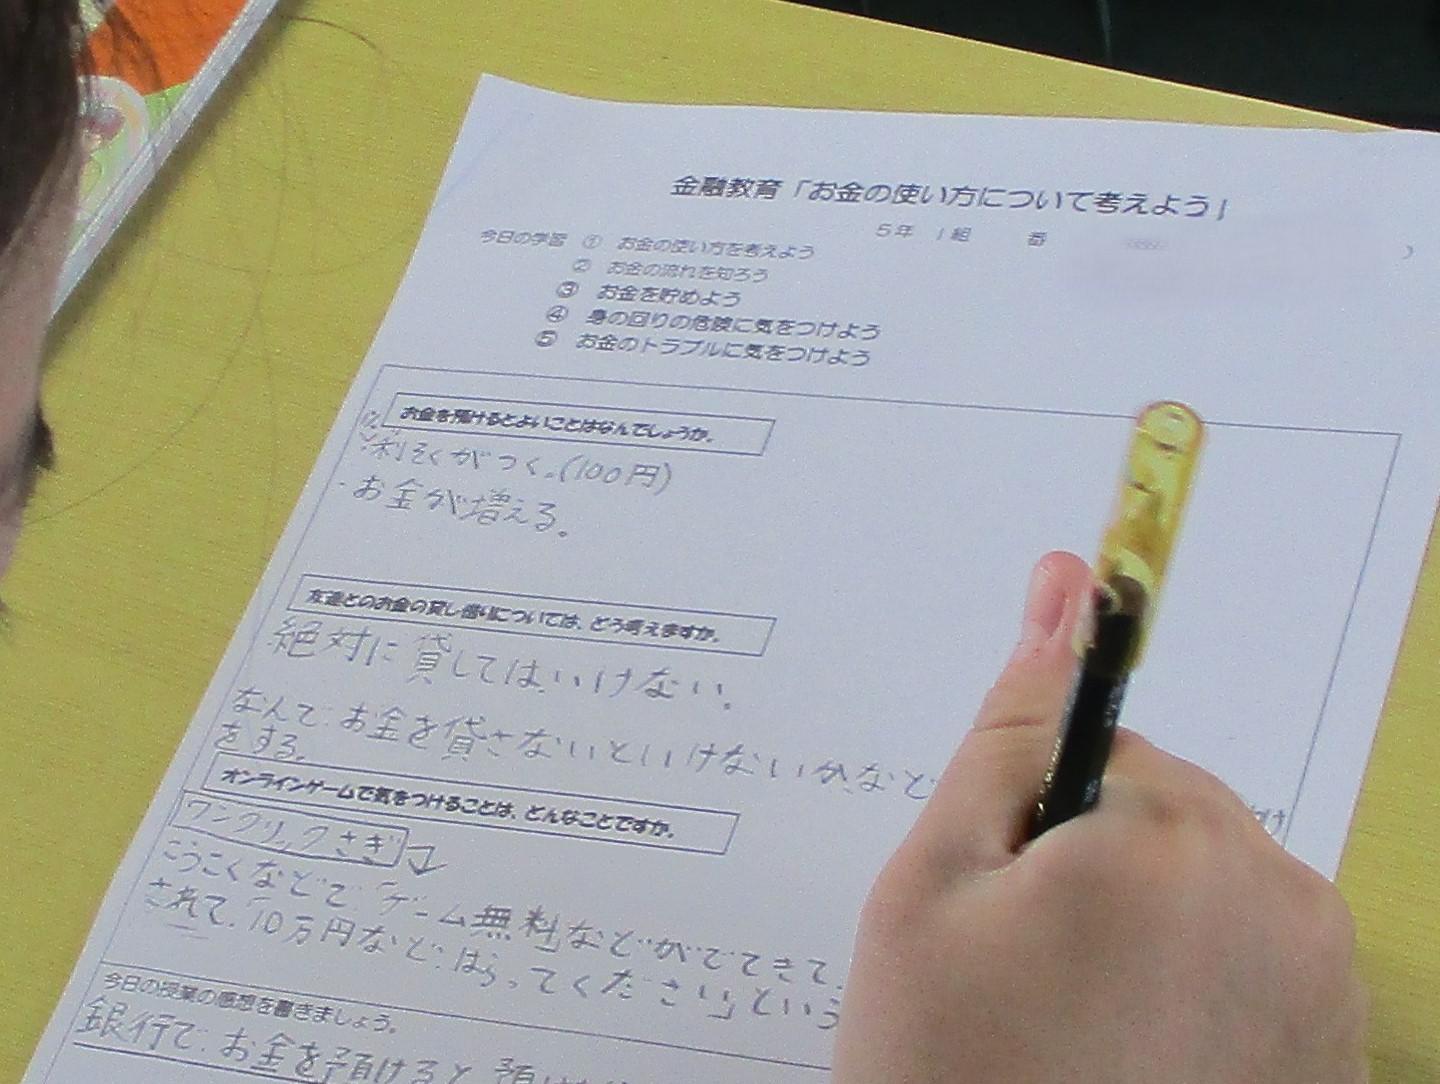 金融教育「お金の使い方について考えよう」
5年 1組 番
今日の学習 ① お金の使い方を考えよう
② お金の流れを知ろう
③ お金を貯めよう
④ 身の回りの危険に気をつけよう
⑤ お金のトラブルに気をつけよう
お金を預けるとよいことはなんでしょうか。
利そくがつく。(100円)
・お金が増える。
友達とのお金の貸し借りについては、どう考えますか。
絶対に貸してはいけない。
なんで、お金を貸さないといけないか、など
をする。
オンラインゲームで気をつけることは、どんなことですか。
ワンクリックさぎ
こうこくなどで「ゲーム無料」などがでてきて、
されて、「10万円など、はらってください」という
今日の授業の感想を書きましょう。
銀行で、お金を預けると、預け